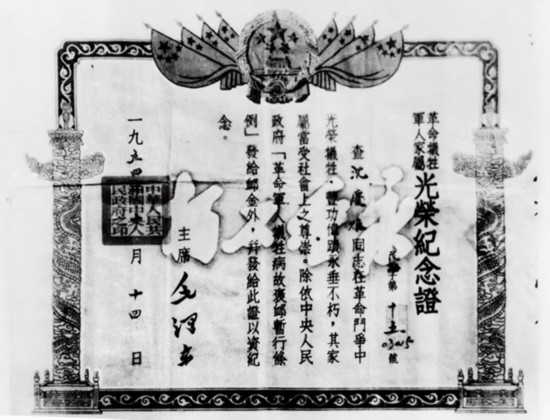 革命犧牲
軍人家屬
光榮紀念證
字第十五03015號
查沈慶同志在革命鬥爭中
光榮犧牲,豐功偉績永垂不朽,其家
屬當受社會上之尊崇。除依中央人民
政府「革命軍人犧牲病故褒卹暫行條
例」發給卹金外,并發給此證以資紀
念。
主席 毛澤东
一九五四 月十四日
中華人民共
和國中央人
民政府之印